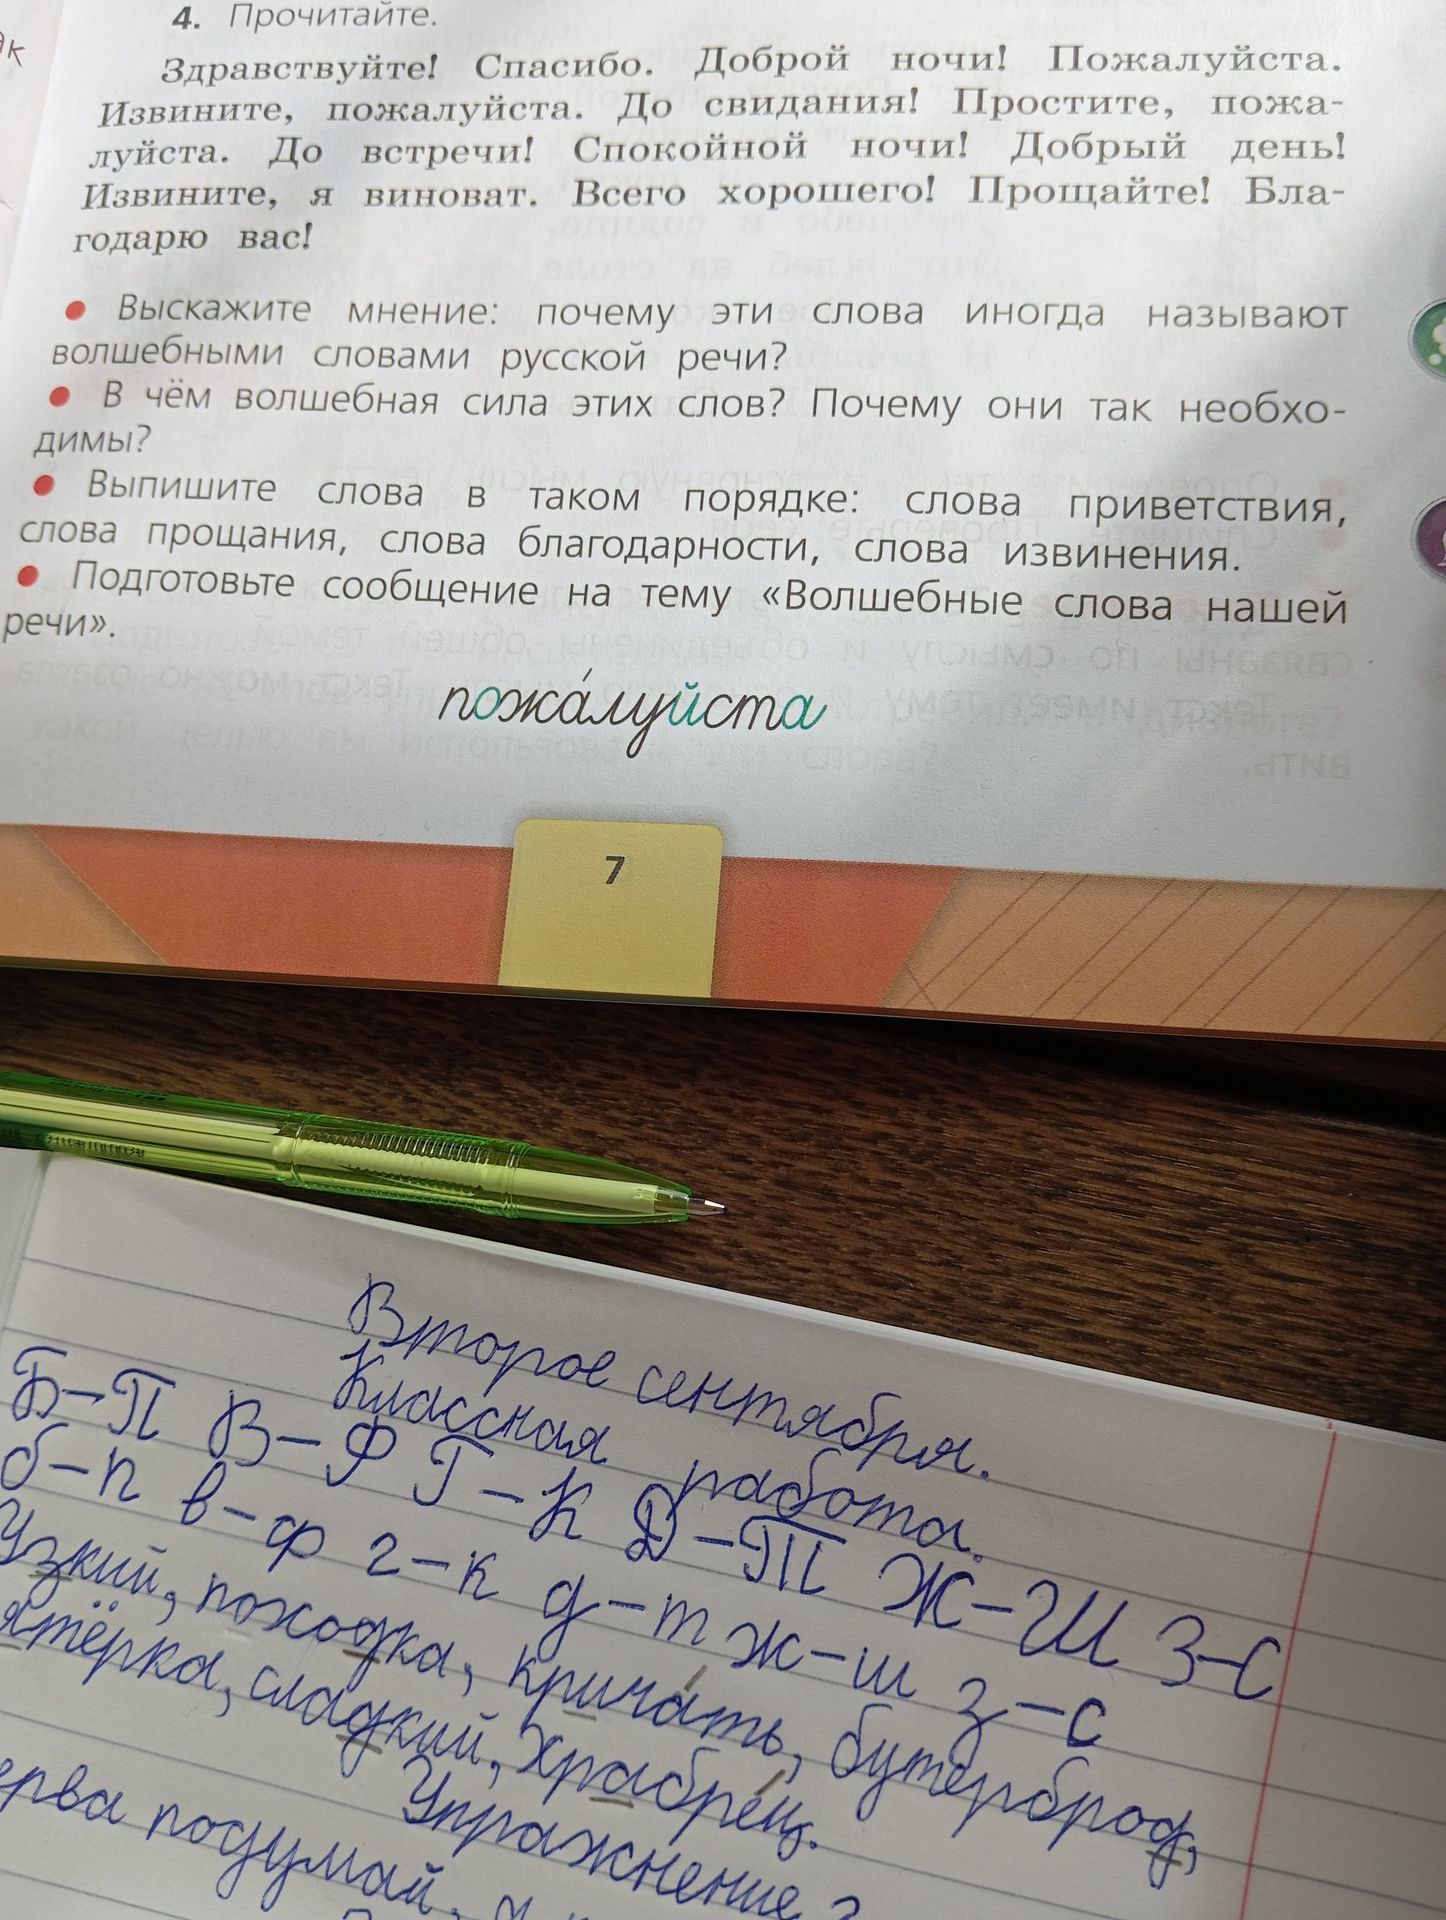 4. Прочитайте.
Здравствуйте! Спасибо. Доброй ночи! Пожалуйста.
Извините, пожалуйста. До свидания! Простите, пожа-
луйста. До встречи! Спокойной ночи! Добрый день!
Извините, я виноват. Всего хорошего! Прощайте! Бла-
годарю вас!
• Выскажите мнение: почему эти слова иногда называют
волшебными словами русской речи?
• В чём волшебная сила этих слов? Почему они так необхо-
димы?
• Выпишите слова в таком порядке: слова приветствия,
слова прощания, слова благодарности, слова извинения.
• Подготовьте сообщение на тему «Волшебные слова нашей
речи».
пожа́луйста
7
Второе сентября.
Классная работа.
Б–П В–Ф Г–К Д–Т Ж–Ш З–С
б–п в–ф г–к д–т ж–ш з–с
Узкий, походка, крича́ть, бутерброд,
ятёрка, сладкий, храбре́ц.
Упражнение
ерва подумай,